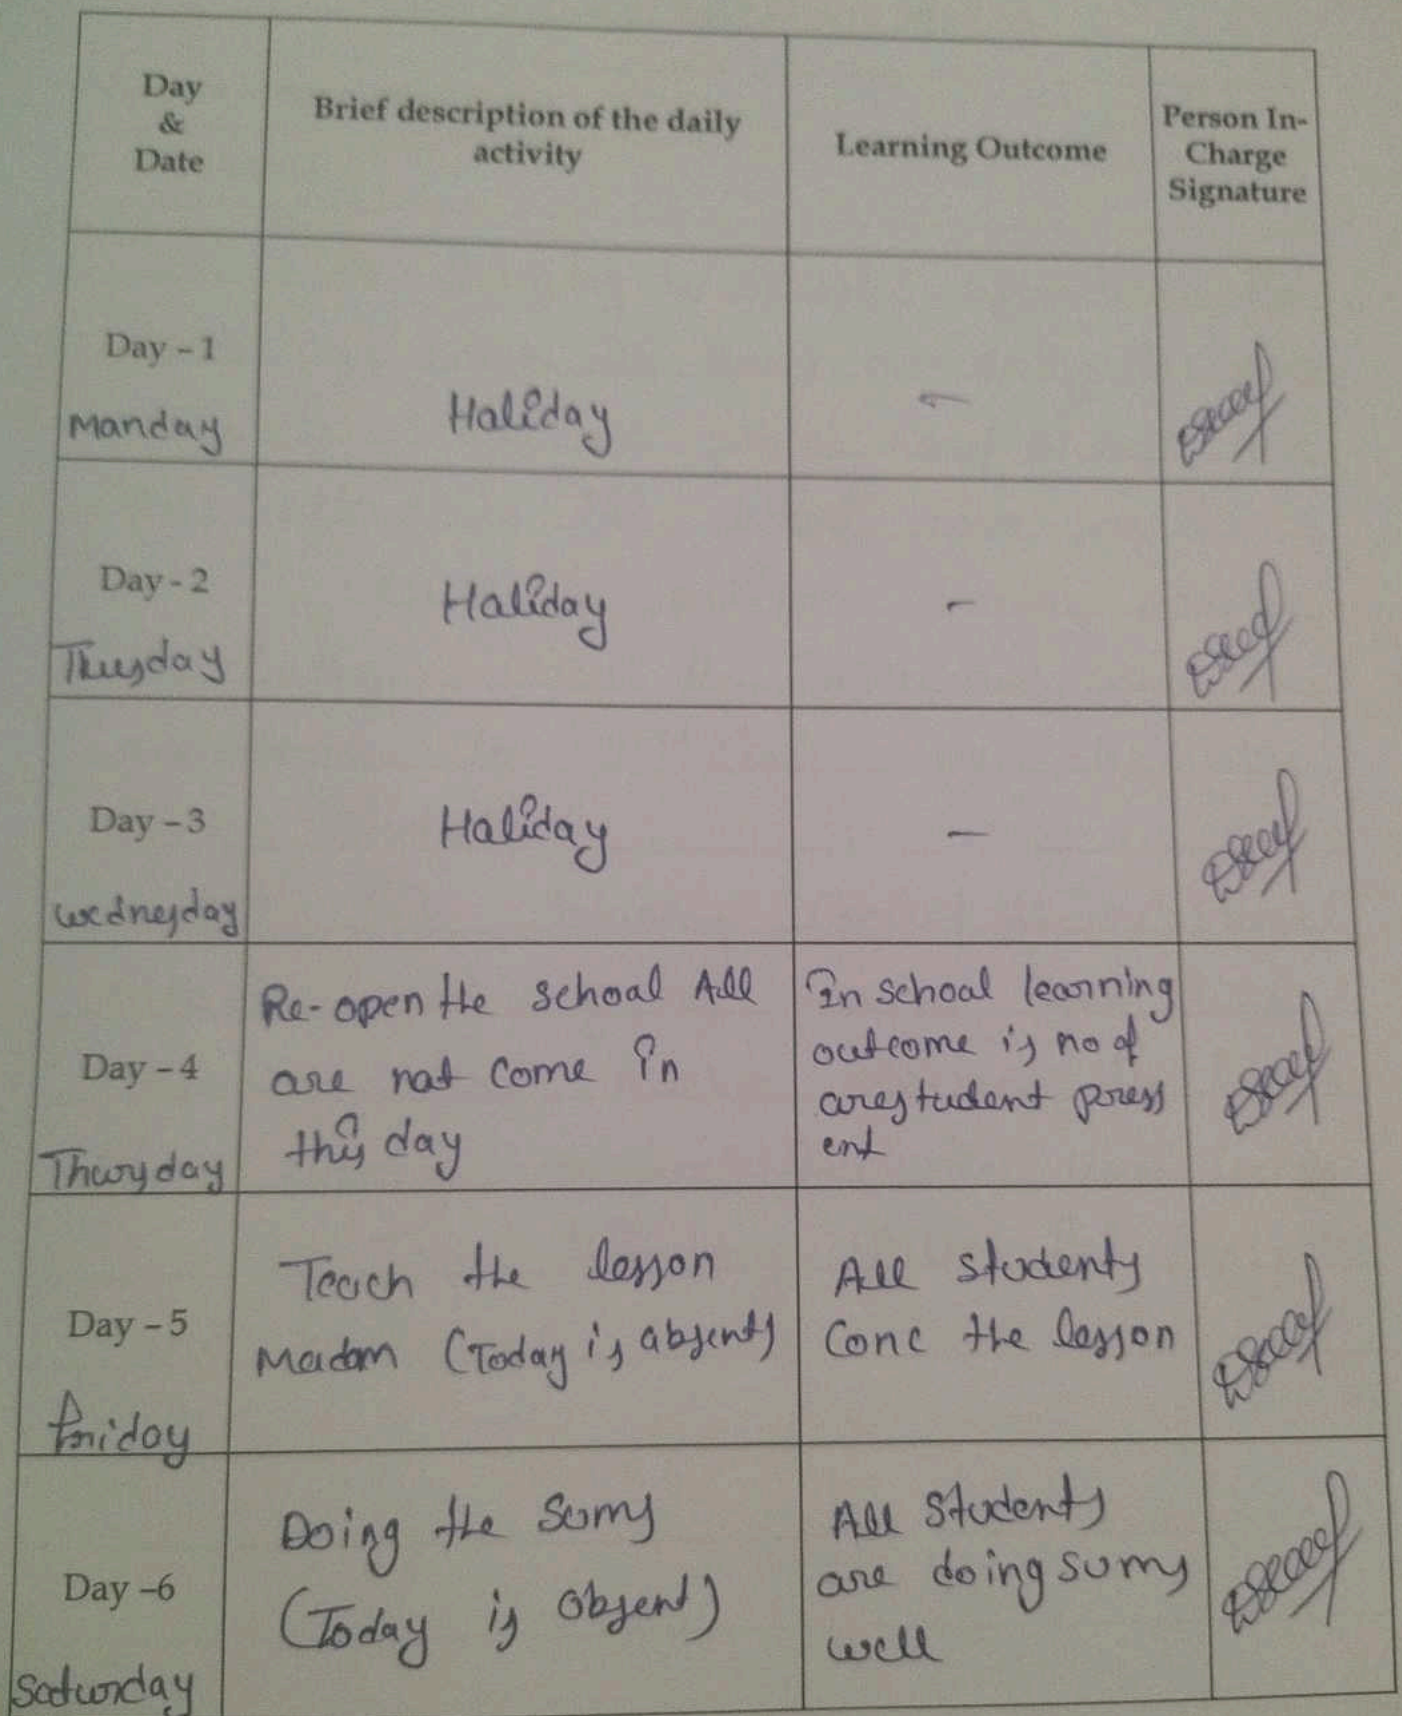 Day
&
Date
Brief description of the daily
activity
Learning Outcome
Person In-
Charge
Signature
Day - 1
Manday
Haliday
-
Day - 2
Thusday
Haliday
-
Day - 3
wednesday
Haliday
-
Day - 4
Thursday
Re-open the school All
are not come in
this day
In school learning
outcome is no of
are student press
ent
Day - 5
Friday
Teach the lesson
Madam (Today is absent)
All students
Conc the lesson
Day -6
Saturday
Doing the Sums
(Today is absent)
All Students
are doing sums
well